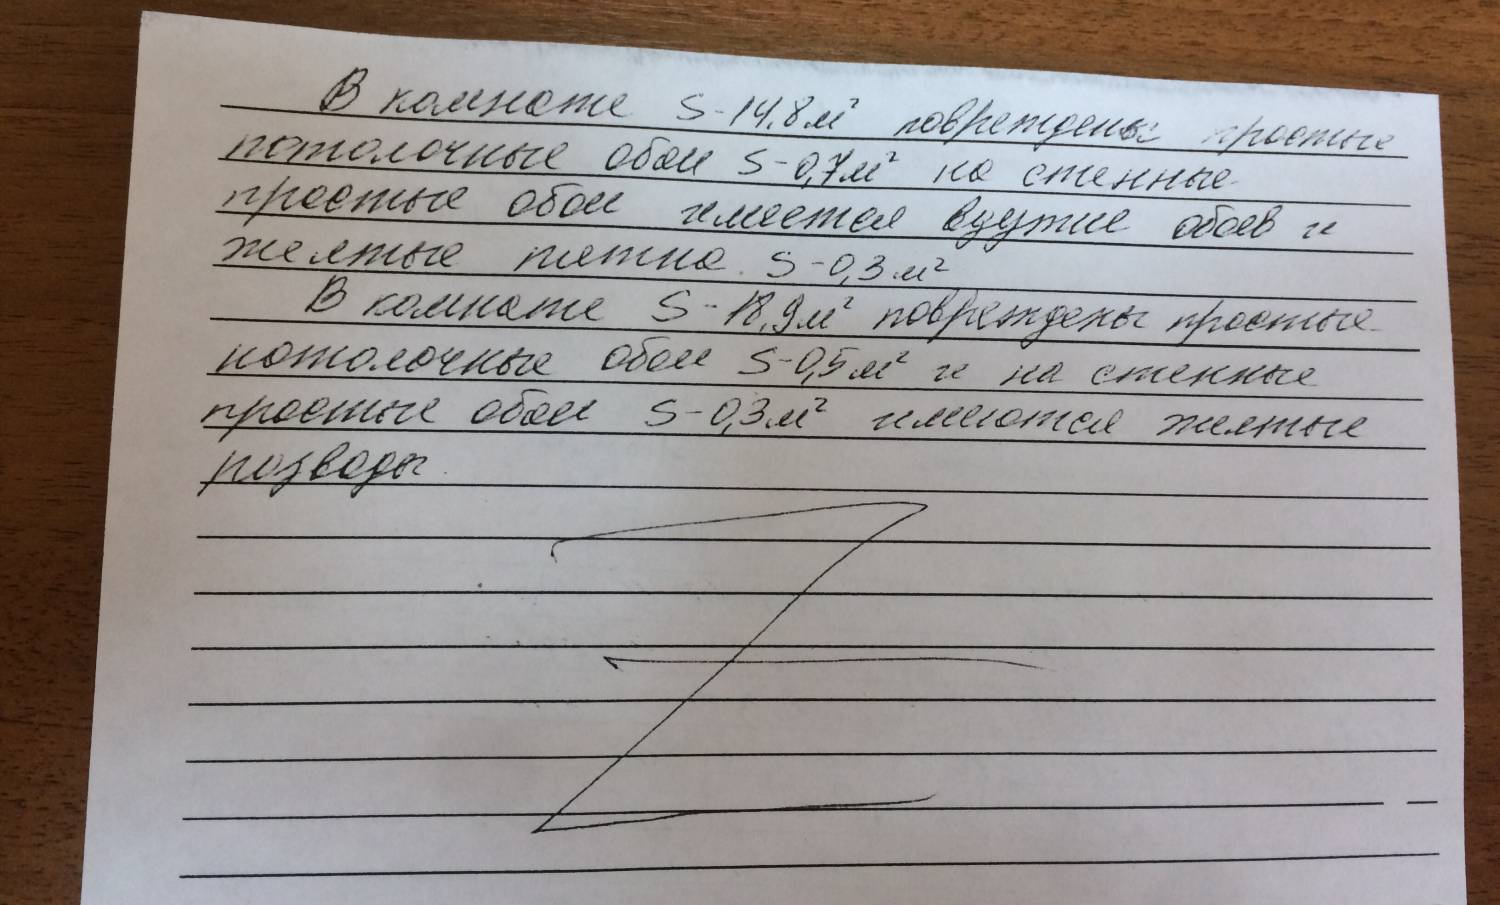 В комнате S-14,8м² повреждены простые
потолочные обои S-0,7м² на стенные
простые обои имеется вздутие обоев и
желтые пятна. S-0,3м²
В комнате S-18,9м² повреждены простые
потолочные обои S-0,5м² и на стенные
простые обои S-0,3м² имеются желтые
разводы.